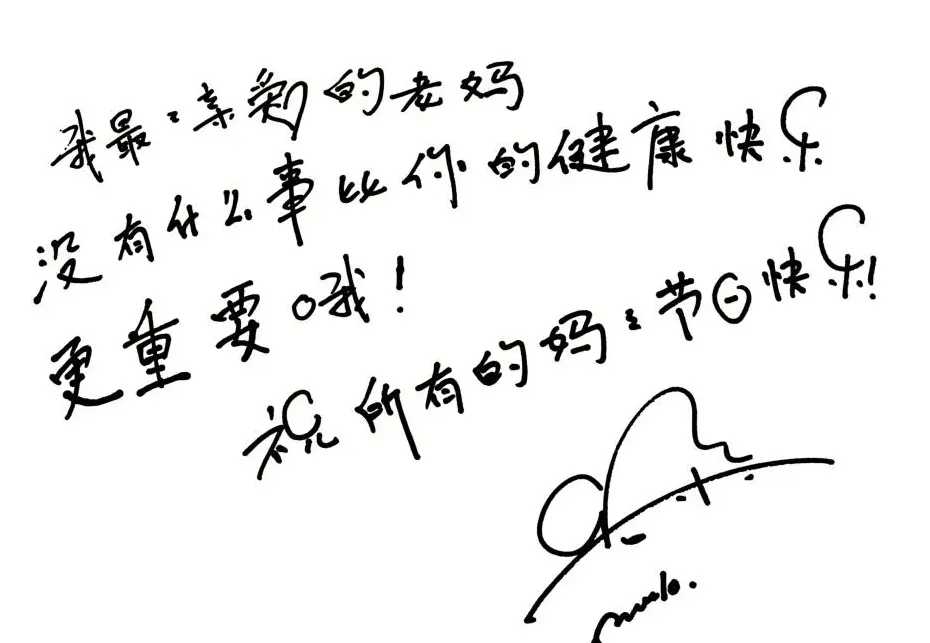 我最最亲爱的老妈
没有什么事比你的健康快乐
更重要哦！
祝所有的妈妈节日快乐！